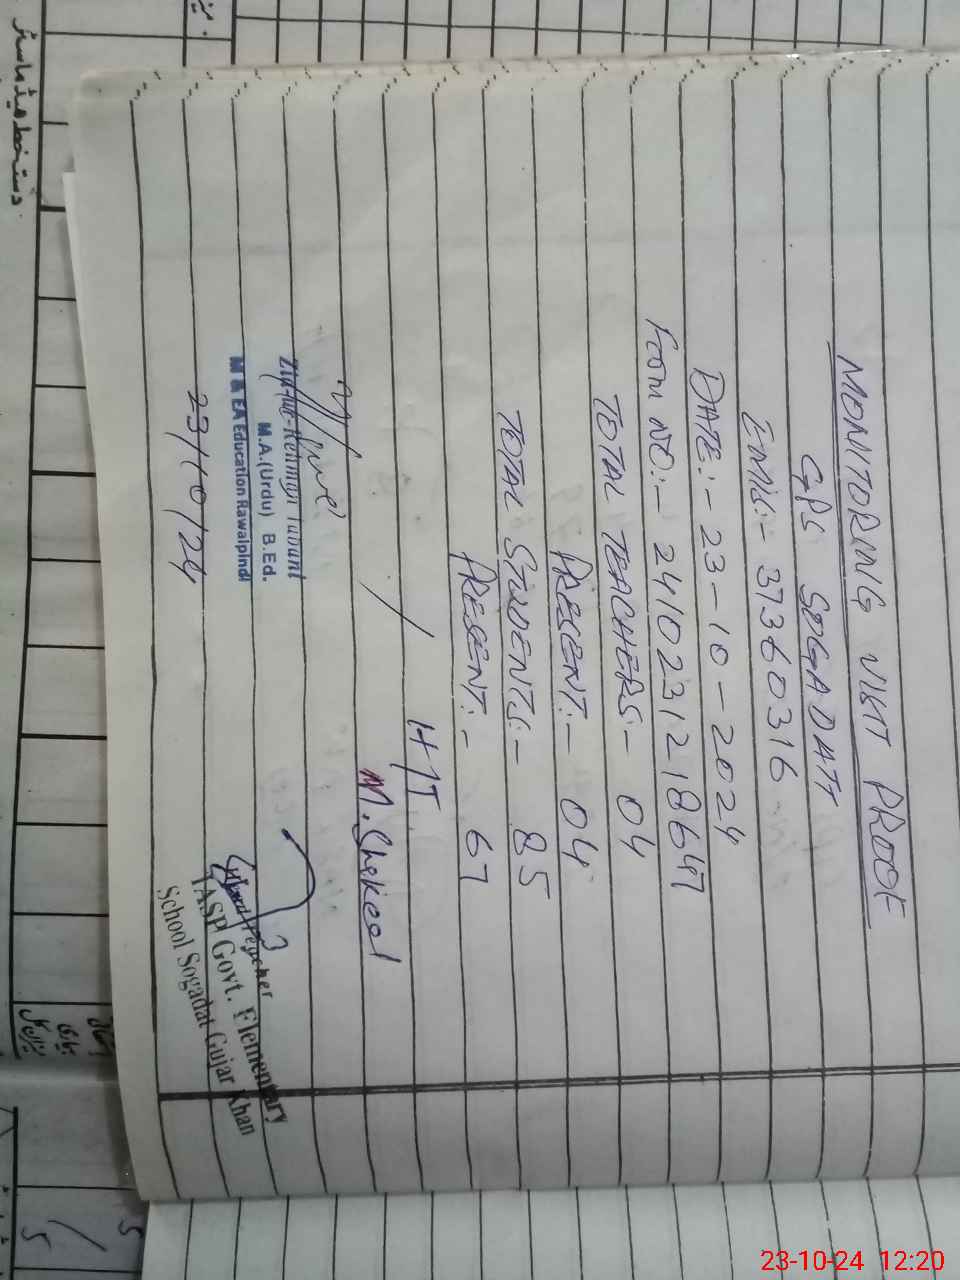 MONITORING VISIT PROOF
GPS SOGADATT
EMIS:- 37360316
DATE:- 23-10-2024
Form NO:- 2410231218647
TOTAL TEACHERS:- 04
PRESENT:- 04
TOTAL STUDENTS:- 85
PRESENT:- 67
H/T
M. Shakeel
M.A.(Urdu) B.Ed.
M & EA Education Rawalpindi
23/10/24
Head Teacher
TASP Govt. Elementary
School Sogadat Gujar Khan
دستخط ہیڈ ماسٹر
5
5
23-10-24 12:20